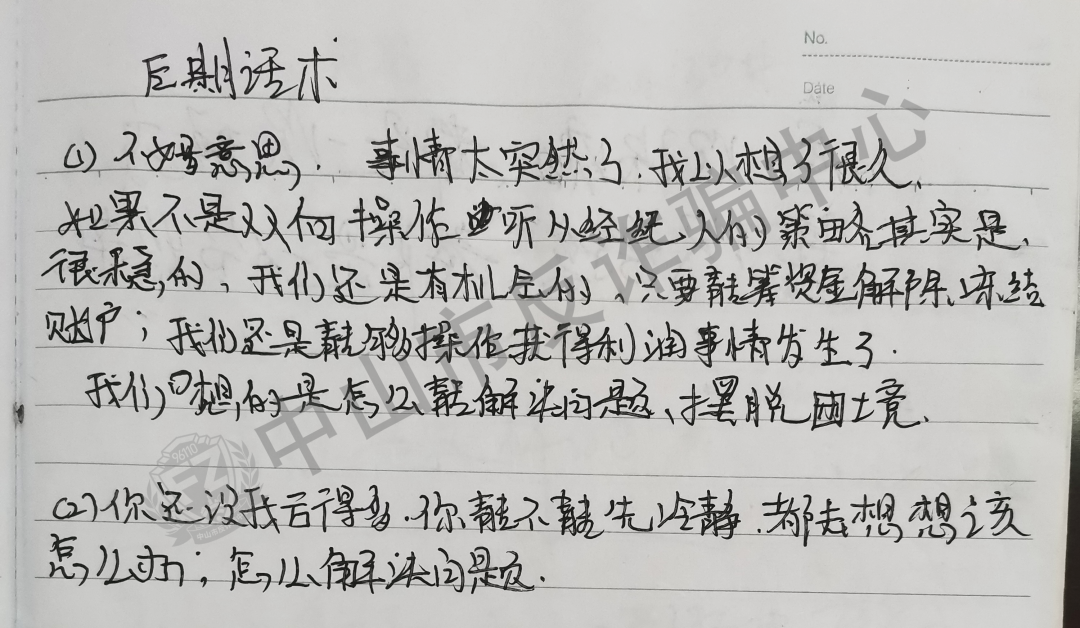 No.
后期话术
Date
(1) 不好意思, 事情太突然了.我上次想了很久、
如果不是双向操作 听从经纪人的策略其实是、
很稳的, 我们还是有机会的、只要能筹资金解除、冻结
账户; 我们还是能够操作获得利润事情发生了.
我们 想的是怎么能解决问题、摆脱困境、
(2)你还没我亏得多.你能不能先冷静.都去想想该
怎么办; 怎么解决问题.
中山市反诈骗中心
96110